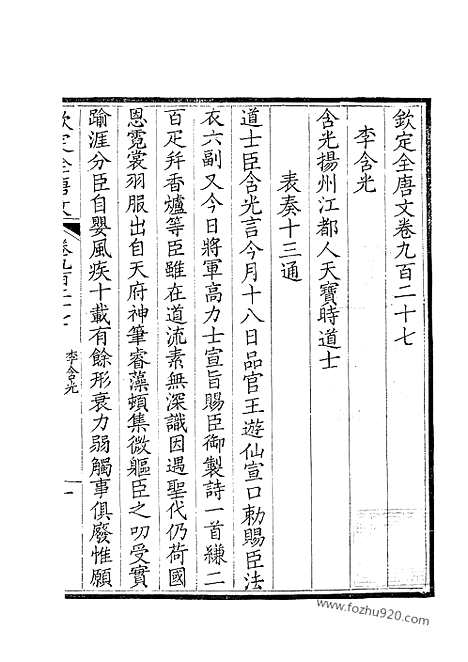 欽定全唐文卷九百二十七
李含光
含光揚州江都人天寶時道士
表奏十三通
道士臣含光言今月十八日品官王遊仙宣口勅賜臣法
衣六副又今日將軍高力士宣旨賜臣御製詩一首縑二
百疋并香爐等臣雖在道流素無深識因遇聖代仍荷國
恩霓裳羽服出自天府神筆睿藻頓集微軀臣之叨受實
踰涯分臣自嬰風疾十載有餘形衰力弱觸事俱廢惟願
欽定全唐文 卷九百二十七 李含光 一
www.fozhu920.com